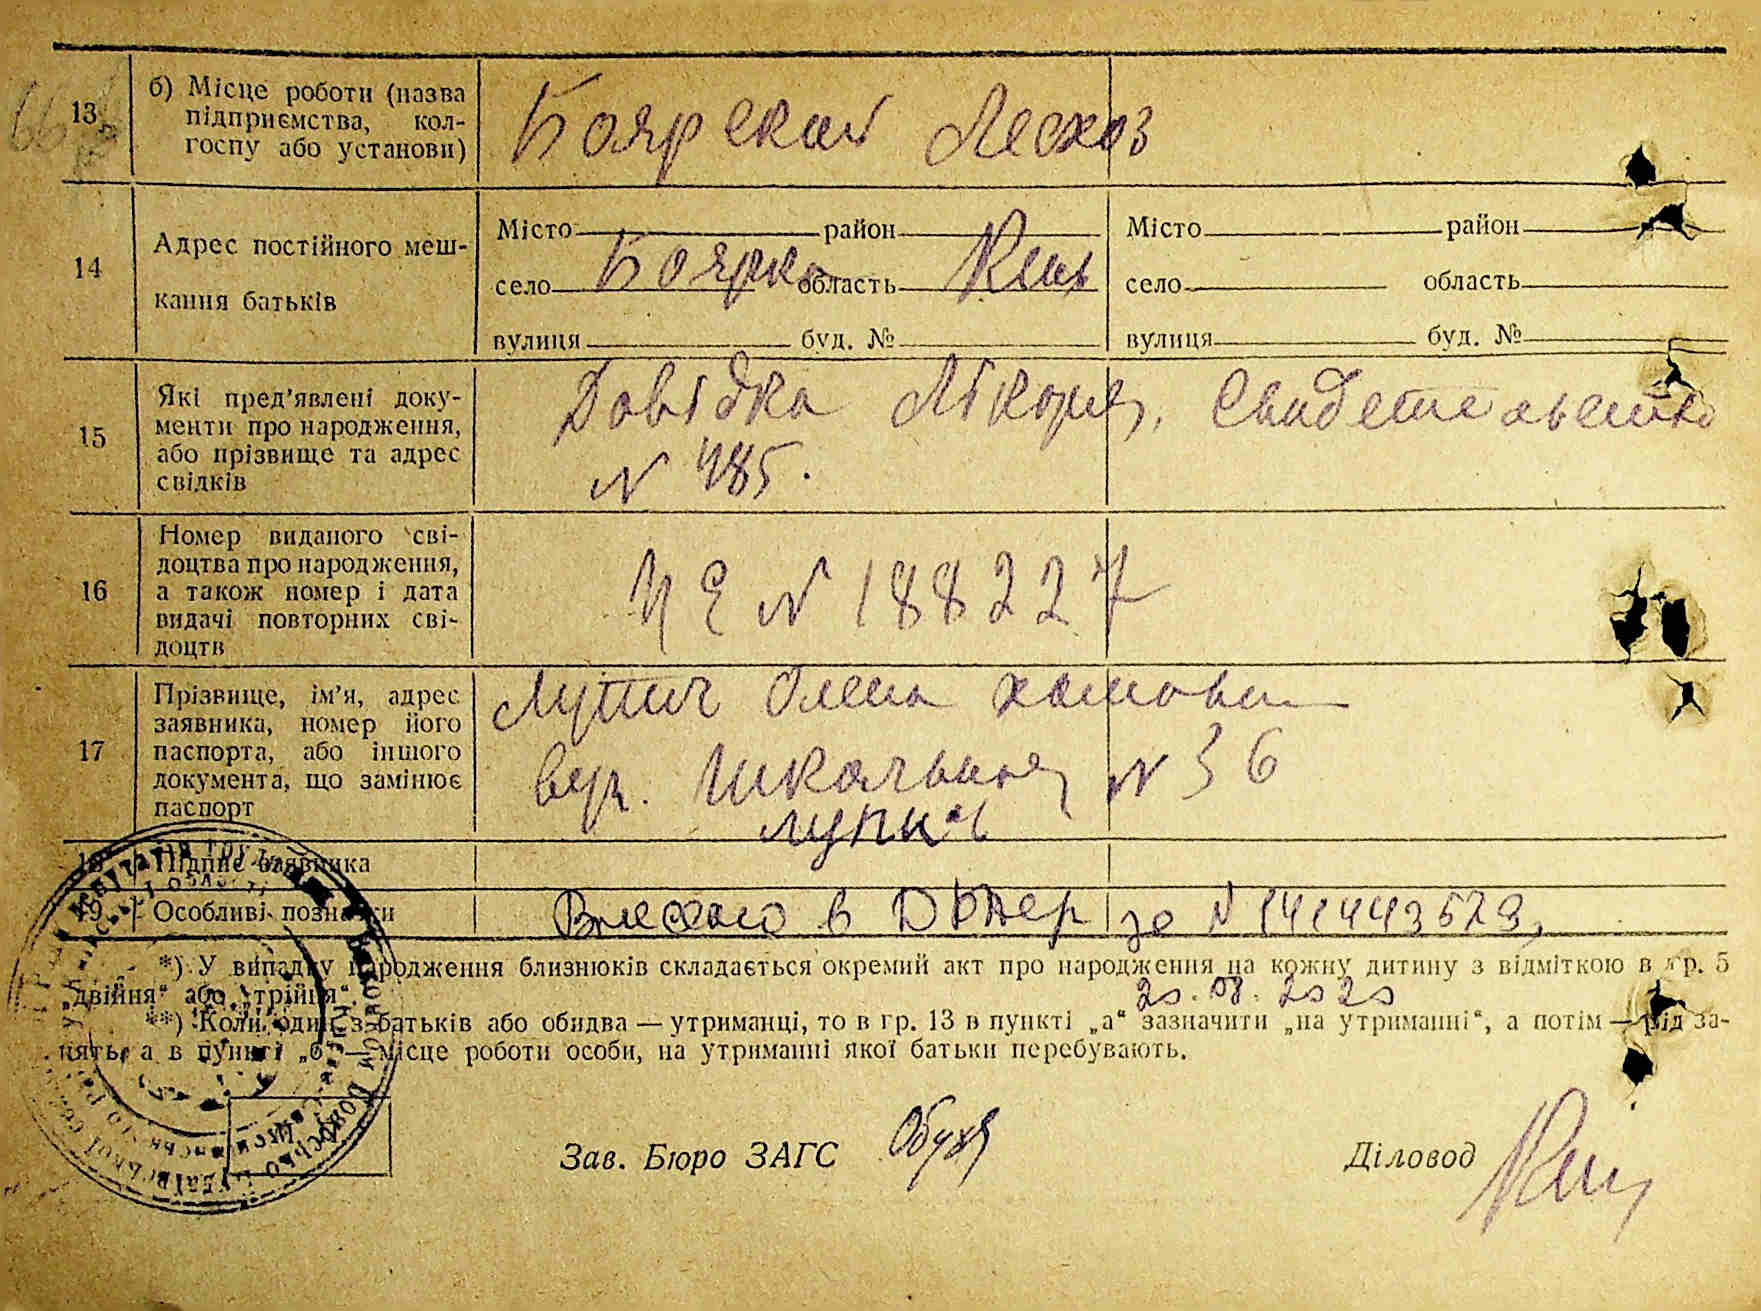 13
б) Місце роботи (назва
підприємства, кол-
госпу або установи)
Боярский Лесхоз
14
Адрес постійного меш-
кання батьків
Місто район
село Боярка область Київ
вулиця буд. №
Місто район
село область
вулиця буд. №
15
Які пред’явлені доку-
менти про народження,
або прізвище та адрес
свідків
Довідка Лікаря, Свидетельство
N 485.
16
Номер виданого сві-
доцтва про народження,
а також номер і дата
видачі повторних сві-
доцтв
N 188227
17
Прізвище, ім’я, адрес
заявника, номер його
паспорта, або іншого
документа, що замінює
паспорт
Лупич Олена Хомовна
вул. Школьная N 36
Лупич
18
Підпис заявника
19
Особливі познатки
Внесено в ДРАЦС за N 141443523,
*) У випадку народження близнюків складається окремий акт про народження на кожну дитину з відміткою в гр. 5
„двійня“ або „трійня“.
20.08.2020
**) Коли один з батьків або обидва — утриманці, то в гр. 13 в пункті „а“ зазначити „на утриманні“, а потім — рід за-
нять, а в пункті „б“ — місце роботи особи, на утриманні якої батьки перебувають.
Зав. Бюро ЗАГС
Діловод